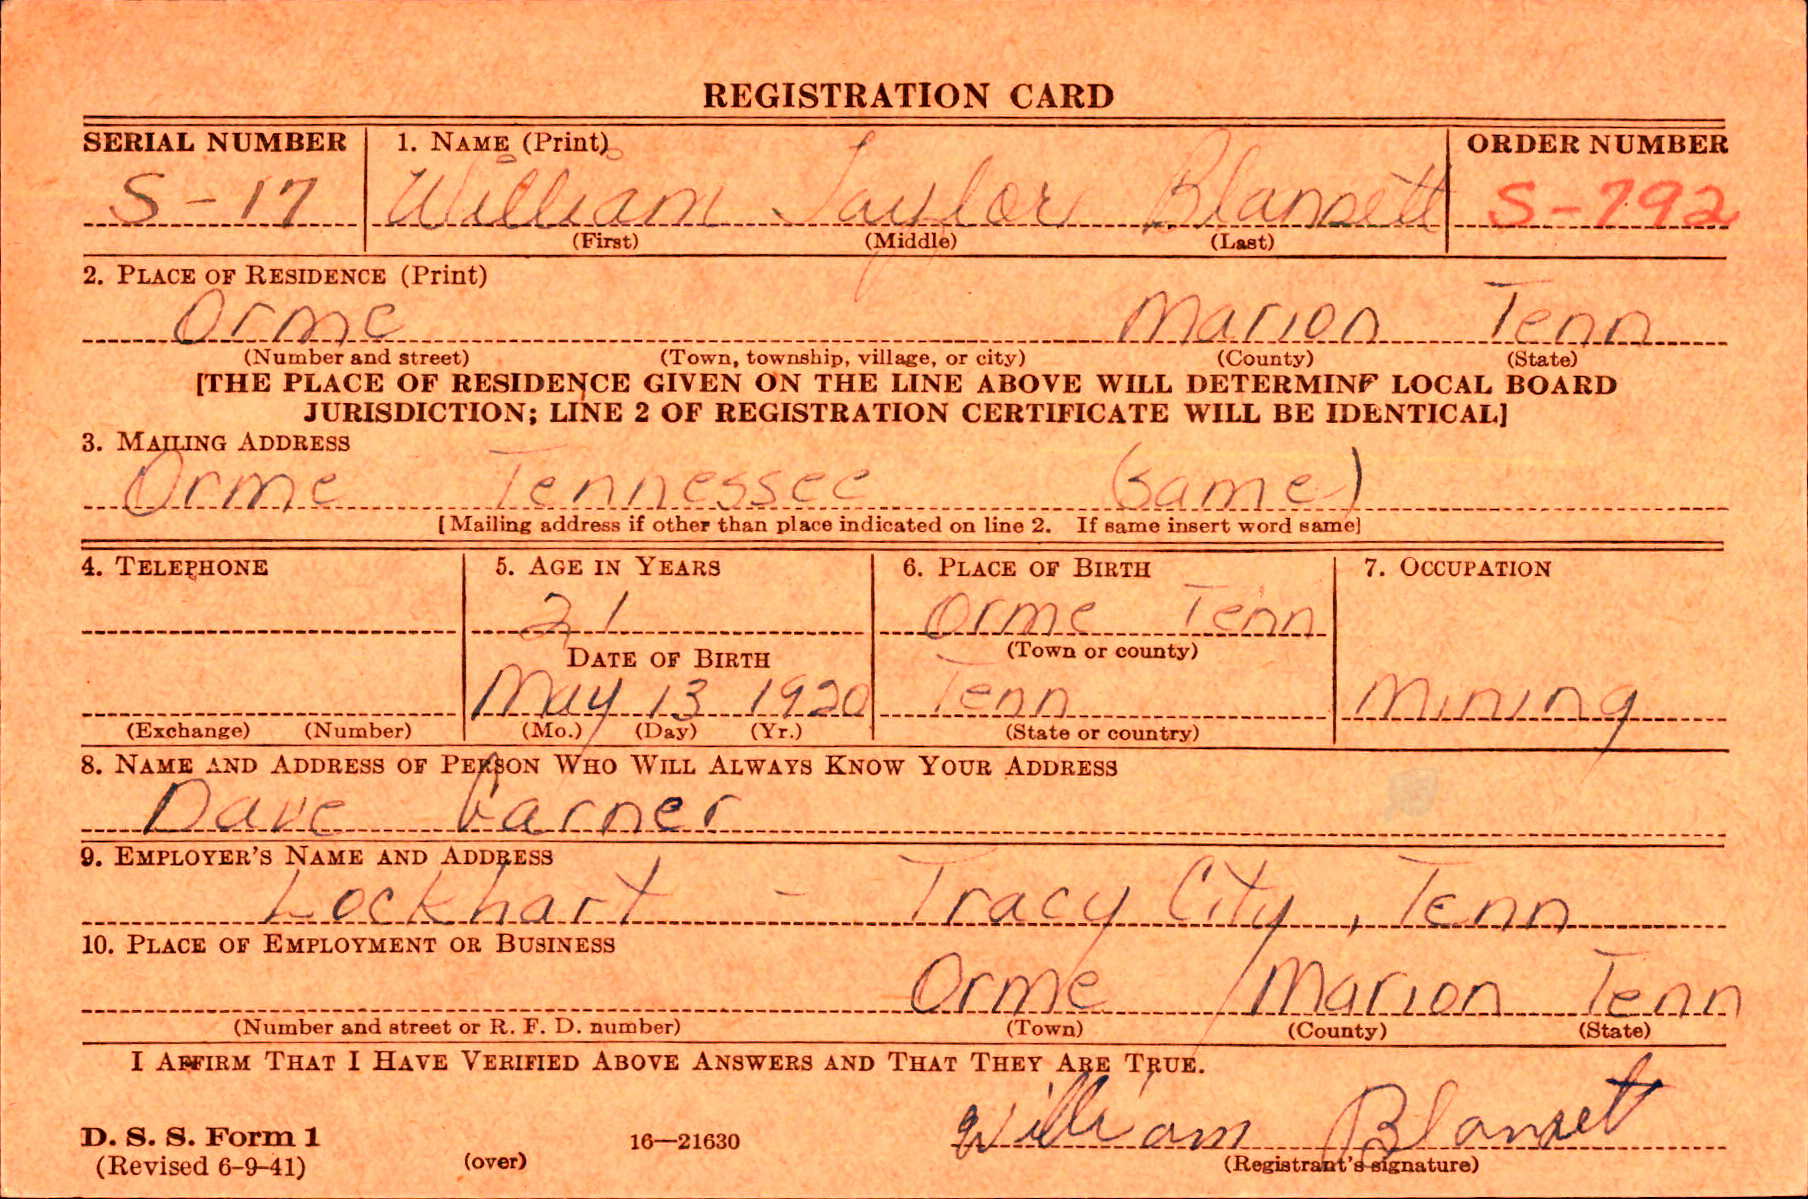 REGISTRATION CARD
SERIAL NUMBER 1. NAME (Print) ORDER NUMBER
S-17 William Taylor Blansett S-792
(First) (Middle) (Last)
2. PLACE OF RESIDENCE (Print)
Orme Marion Tenn
(Number and street) (Town, township, village, or city) (County) (State)
[THE PLACE OF RESIDENCE GIVEN ON THE LINE ABOVE WILL DETERMINE LOCAL BOARD
JURISDICTION; LINE 2 OF REGISTRATION CERTIFICATE WILL BE IDENTICAL]
3. MAILING ADDRESS
Orme Tennessee (same)
[Mailing address if other than place indicated on line 2. If same insert word same]
4. TELEPHONE 5. AGE IN YEARS 6. PLACE OF BIRTH 7. OCCUPATION
21 Orme Tenn
DATE OF BIRTH (Town or county)
May 13 1920 Tenn Mining
(Exchange) (Number) (Mo.) (Day) (Yr.) (State or country)
8. NAME AND ADDRESS OF PERSON WHO WILL ALWAYS KNOW YOUR ADDRESS
Dave Garner
9. EMPLOYER'S NAME AND ADDRESS
Lockhart - Tracy City, Tenn
10. PLACE OF EMPLOYMENT OR BUSINESS
Orme Marion Tenn
(Number and street or R. F. D. number) (Town) (County) (State)
I AFFIRM THAT I HAVE VERIFIED ABOVE ANSWERS AND THAT THEY ARE TRUE.
William Blanset
D. S. S. Form 1 16—21630
(Revised 6-9-41) (over) (Registrant's signature)